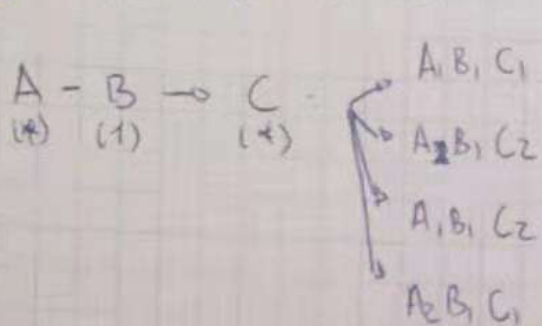 A - B → C
(*) (1) (*)
A₁ B₁ C₁
A₂ B₁ C₂
A₁ B₁ C₂
A₂ B₁ C₁